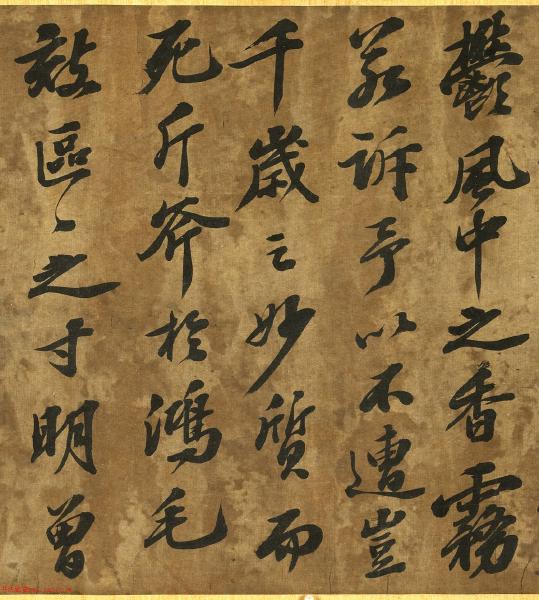 鬱風中之香霧
若訴予以不遭豈
千歲之妙質而
死斤斧於鴻毛
效區〻之寸明曾